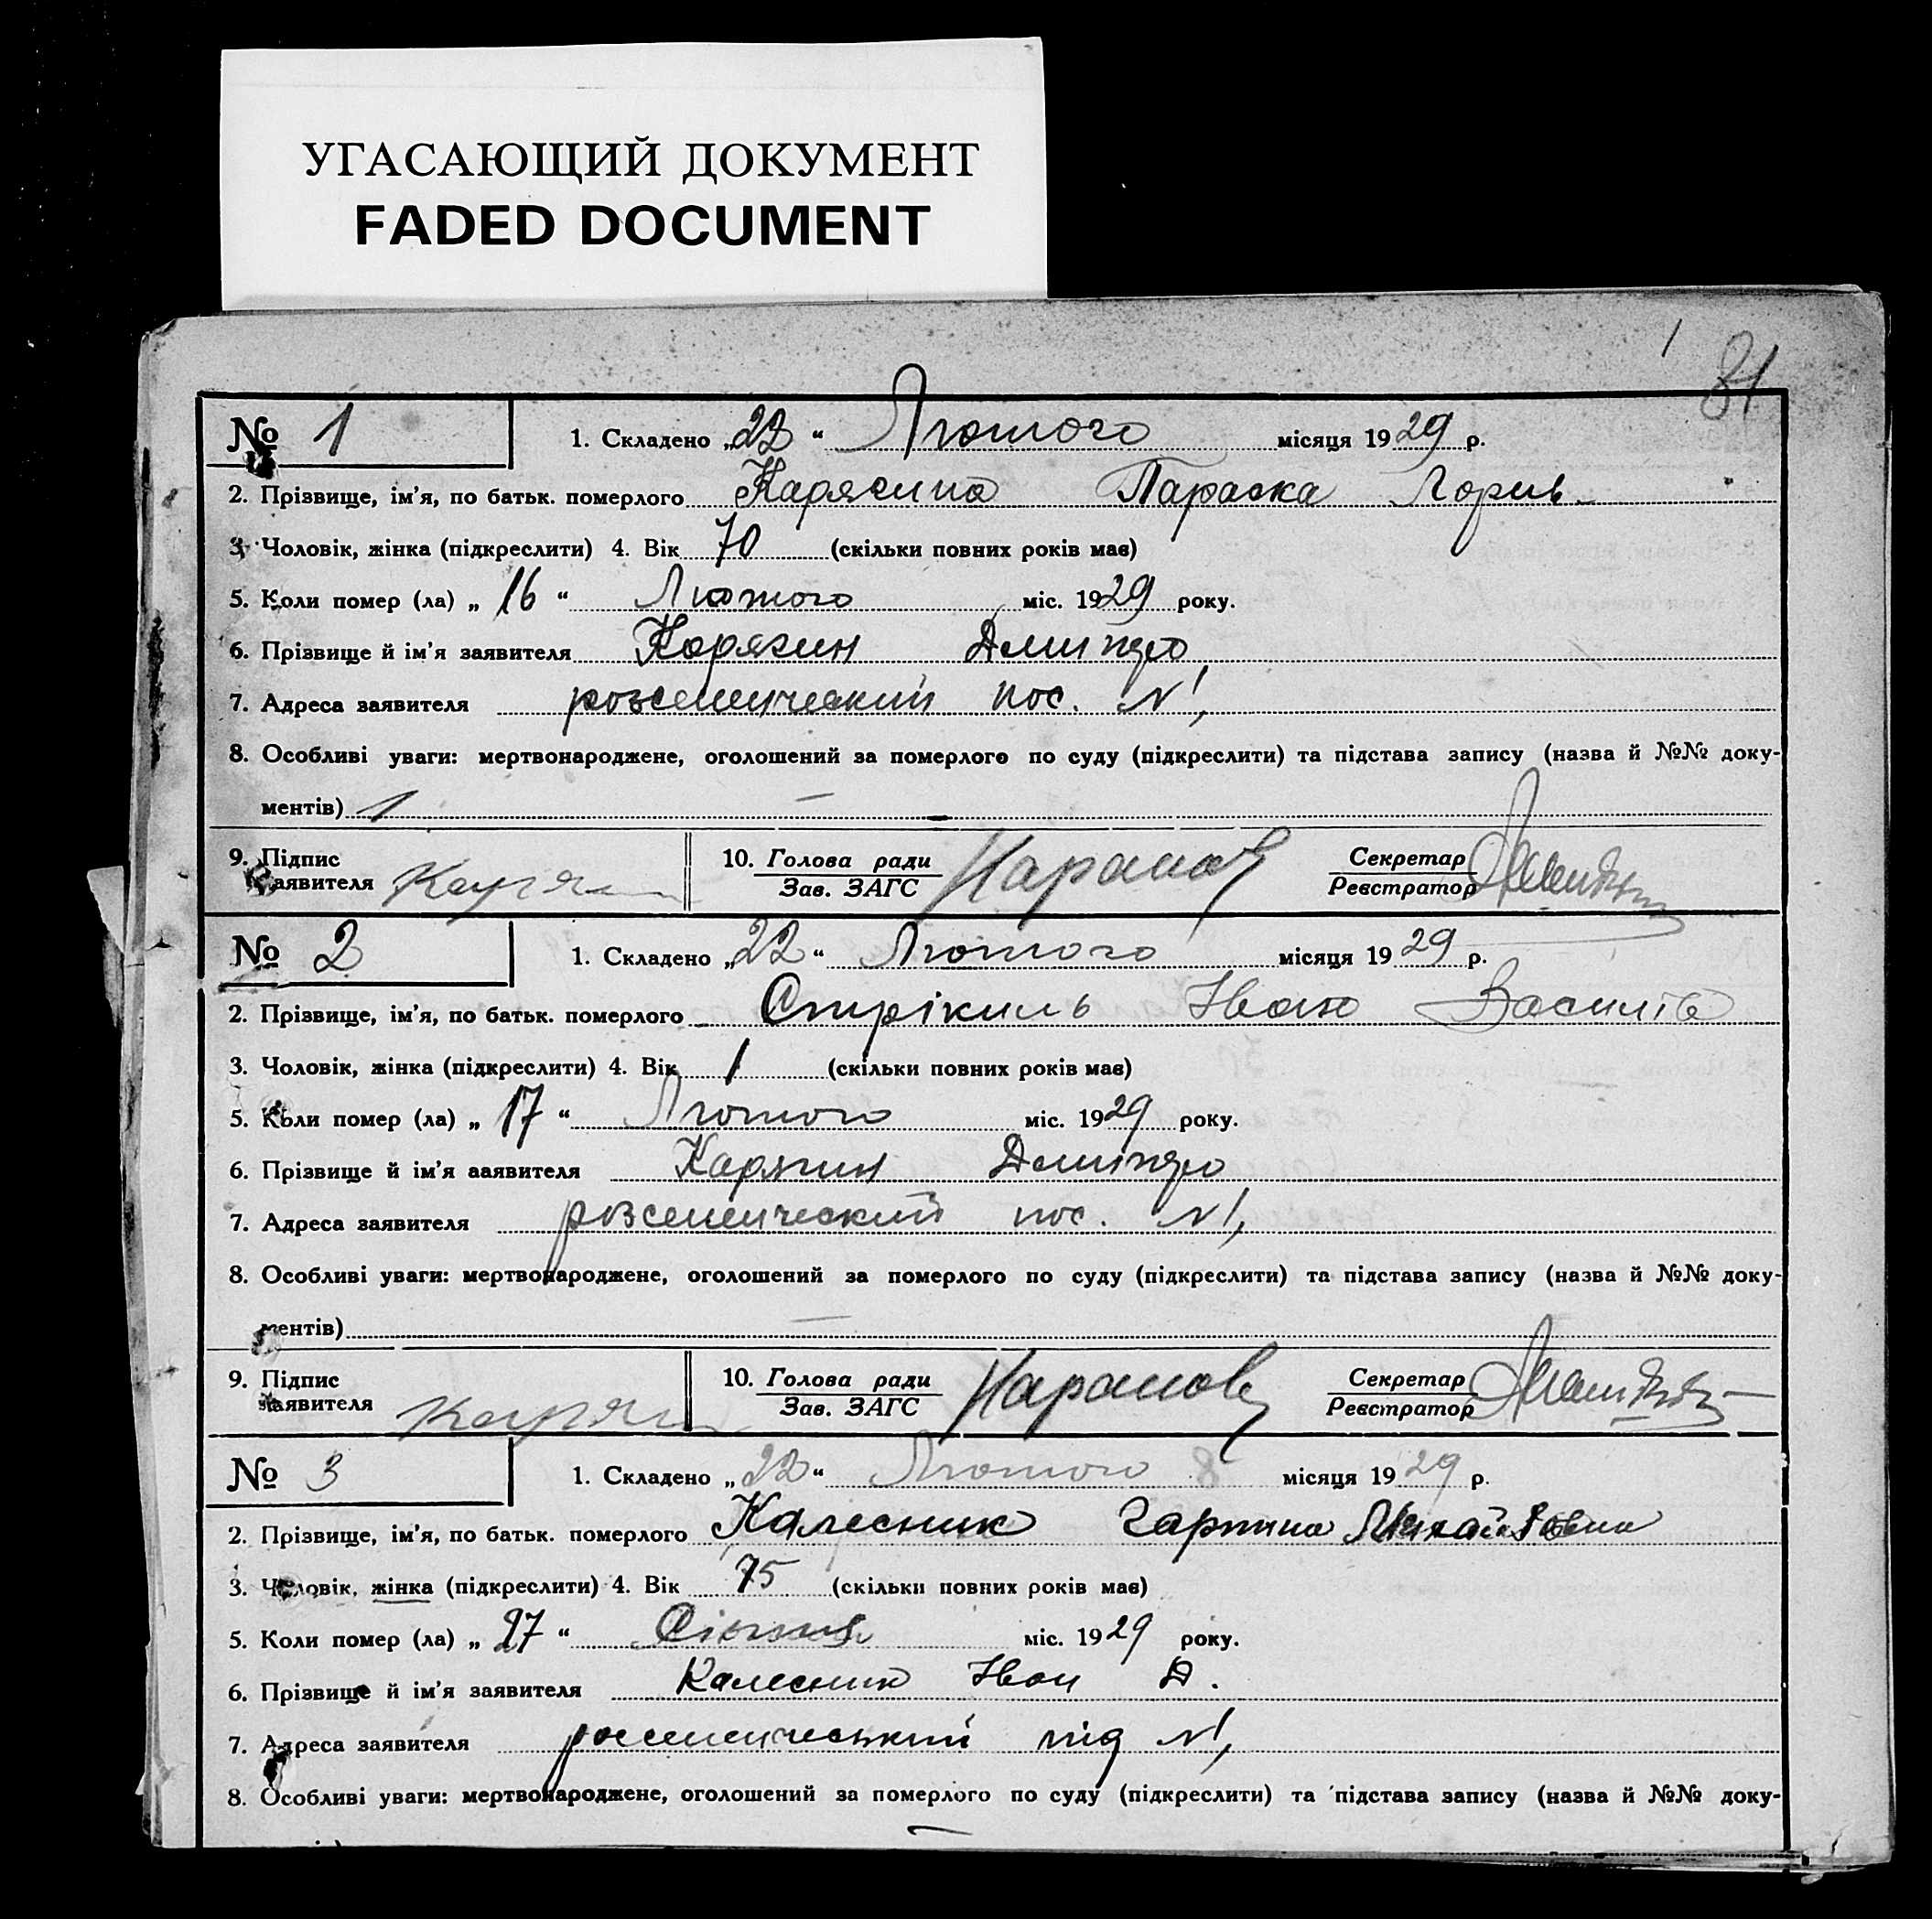 УГАСАЮЩИЙ ДОКУМЕНТ
FADED DOCUMENT
1 81
№ 1 1. Складено „22“ Лютого місяця 1929 р.
2. Прізвище, ім'я, по батьк. померлого Карягина Параска
3. Чоловік, жінка (підкреслити) 4. Вік 70 (скільки повних років має)
5. Коли помер (ла) „16“ Лютого міс. 1929 року.
6. Прізвище й ім'я заявителя Корягин Дмитро
7. Адреса заявителя пос. №1,
8. Особливі уваги: мертвонароджене, оголошений за померлого по суду (підкреслити) та підстава запису (назва й №№ доку-
ментів) 1 —
9. Підпис заявителя 10. Голова ради Зав. ЗАГС Секретар Реєстратор
№ 2 1. Складено „22“ Лютого місяця 1929 р.
2. Прізвище, ім'я, по батьк. померлого Стрікиль Іван Василів
3. Чоловік, жінка (підкреслити) 4. Вік 1 (скільки повних років має)
5. Коли помер (ла) „17“ Лютого міс. 1929 року.
6. Прізвище й ім'я заявителя Карягин Дмитро
7. Адреса заявителя пос. №1,
8. Особливі уваги: мертвонароджене, оголошений за померлого по суду (підкреслити) та підстава запису (назва й №№ доку-
ментів) —
9. Підпис заявителя 10. Голова ради Зав. ЗАГС Секретар Реєстратор
№ 3 1. Складено „22“ Лютого 8 місяця 1929 р.
2. Прізвище, ім'я, по батьк. померлого Калесник Гарпина Михайловна
3. Чоловік, жінка (підкреслити) 4. Вік 75 (скільки повних років має)
5. Коли помер (ла) „27“ Січня міс. 1929 року.
6. Прізвище й ім'я заявителя Калесник Іван Д.
7. Адреса заявителя №1,
8. Особливі уваги: мертвонароджене, оголошений за померлого по суду (підкреслити) та підстава запису (назва й №№ доку-